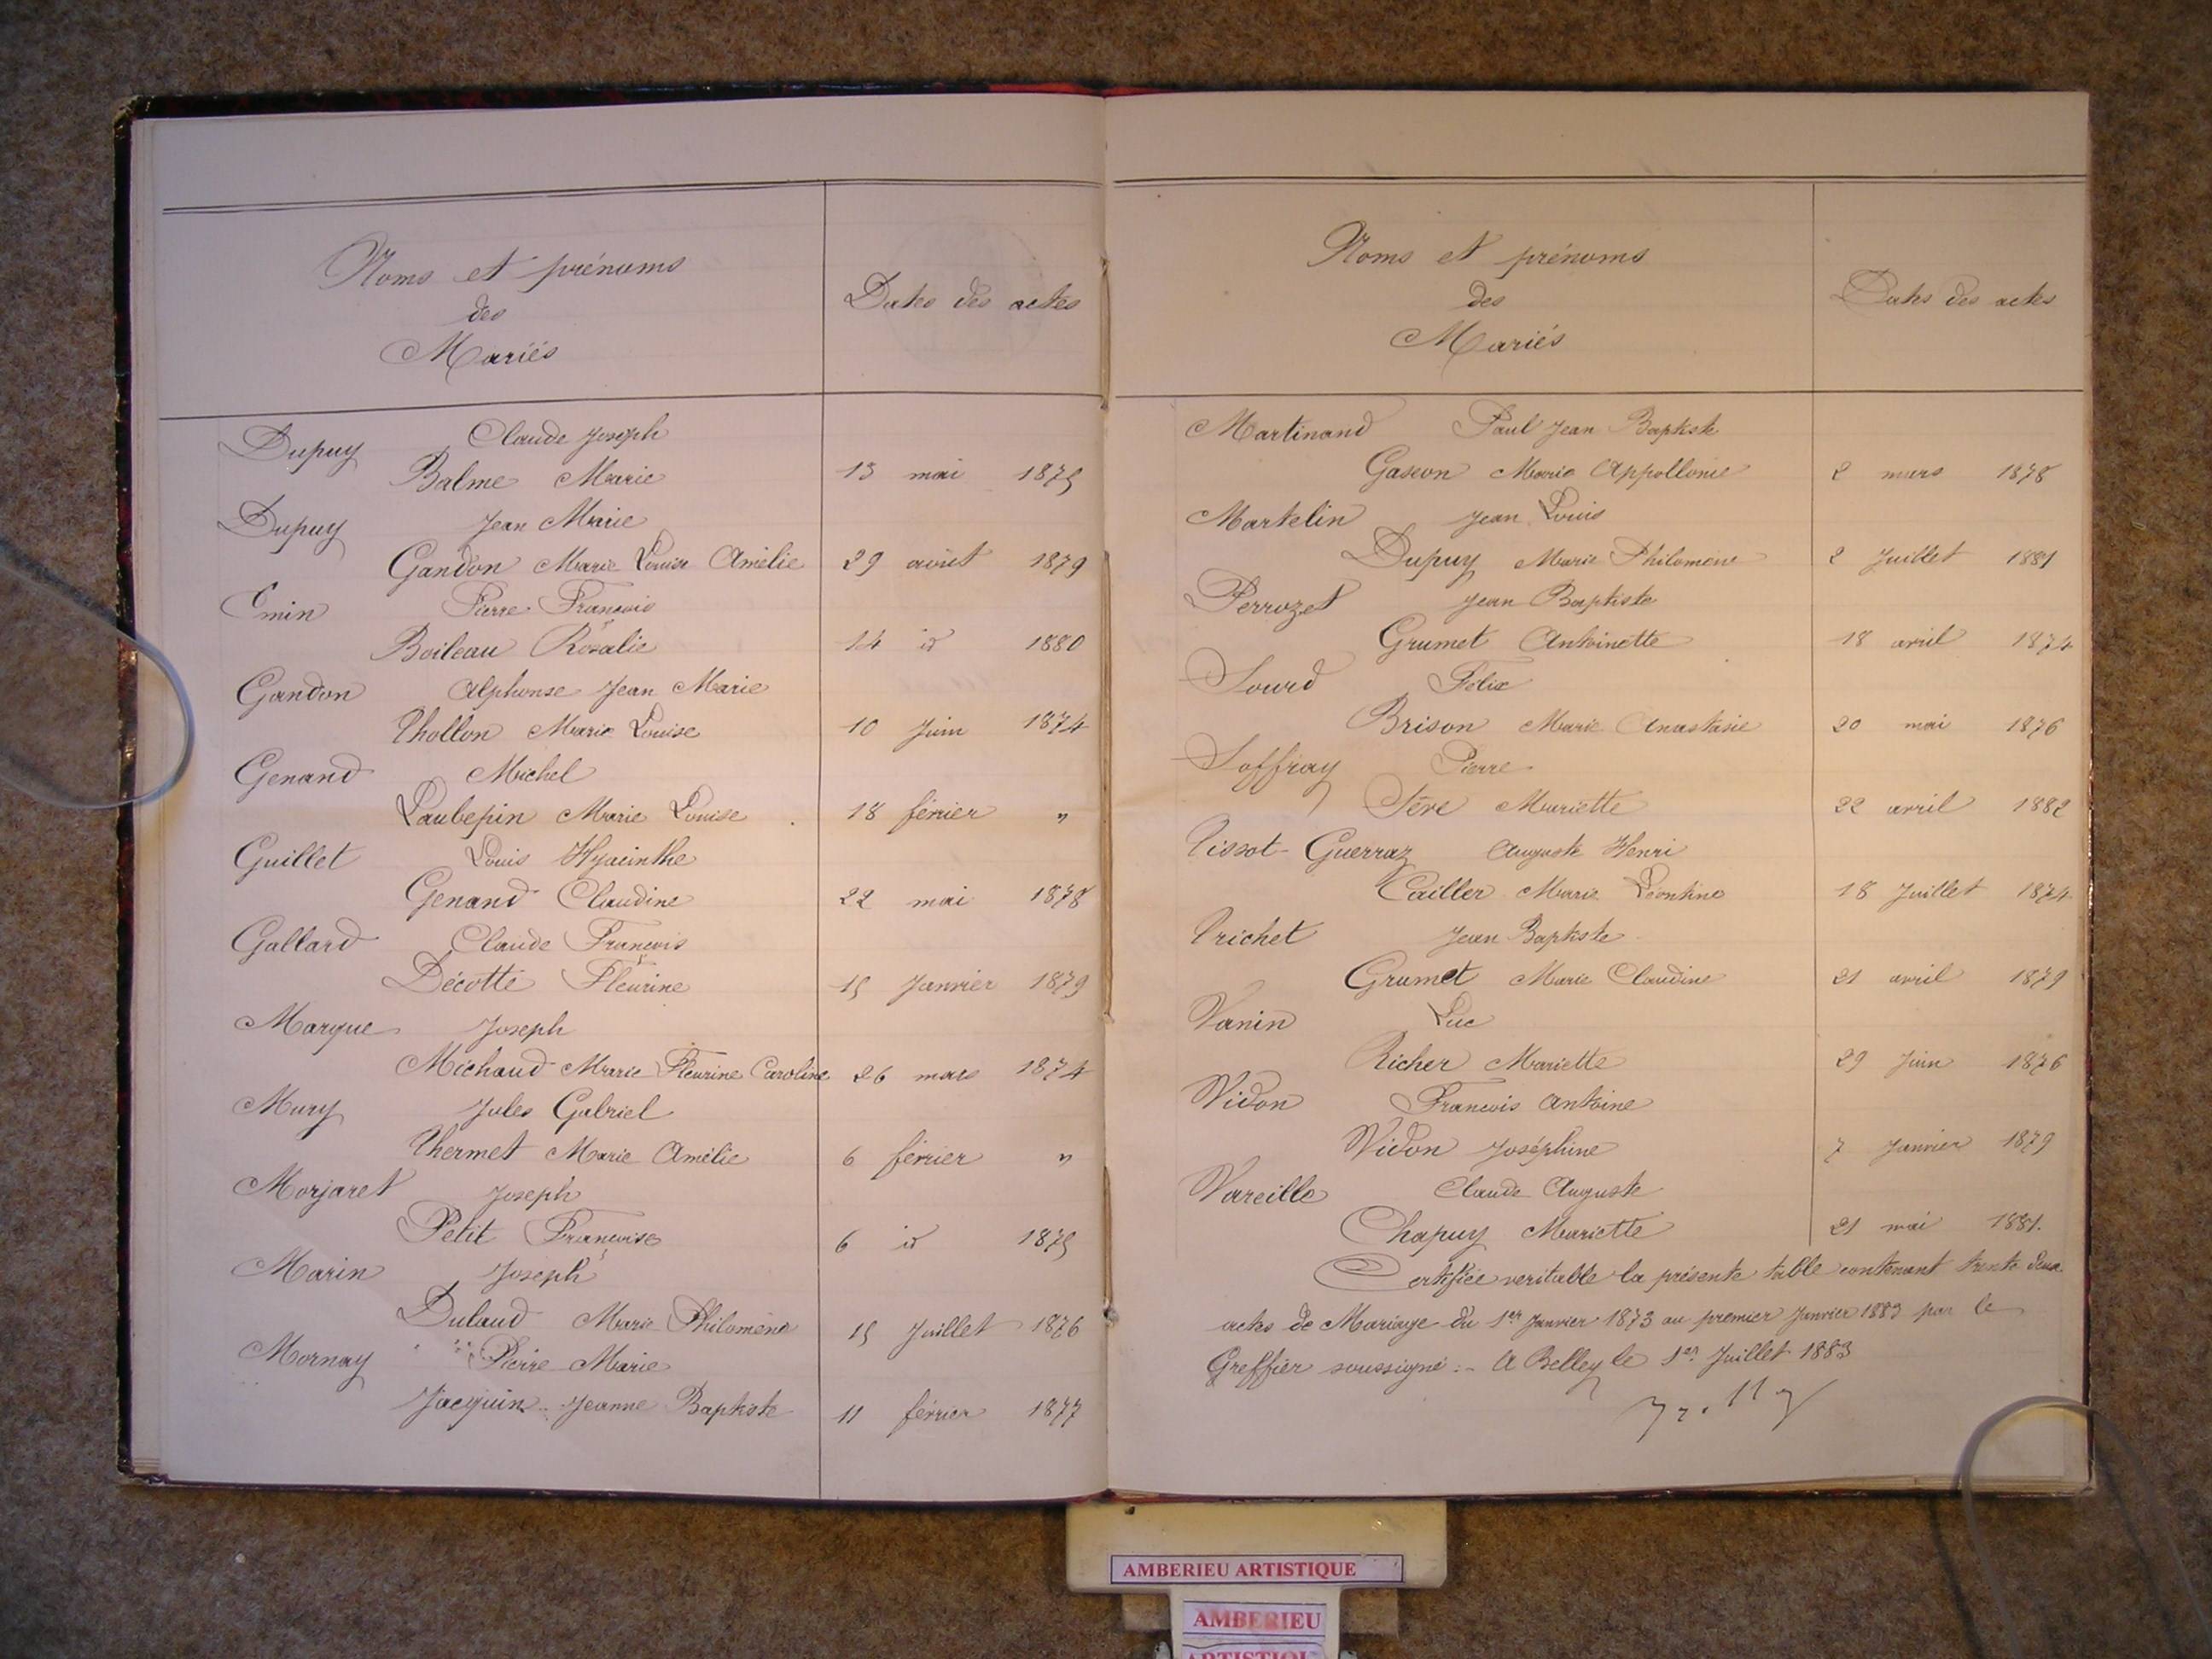 Noms et prénoms
des
Mariés
Dates des actes
Dupuy Claude Joseph
Balme Marie 13 mai 1875
Dupuy Jean Marie
Gandon Marie Louise Amélie 29 août 1879
Emin Pierre François
Boileau Rosalie 14 id 1880
Gandon Alphonse Jean Marie
Thollon Marie Louise 10 Juin 1874
Genand Michel
Laubepin Marie Louise 18 février "
Guillet Louis Hyacinthe
Genand Claudine 22 mai 1878
Gallard Claude François
Décotte Fleurine 15 Janvier 1879
Marque Joseph
Michaud Marie Fleurine Caroline 26 mars 1874
Mury Jules Gabriel
Thermet Marie Amélie 6 février "
Morjaret Joseph
Petit Françoise 6 id 1875
Marin Joseph
Dulaud Marie Philomène 15 Juillet 1876
Mornay Pierre Marie
Jacquin Jeanne Baptiste 11 février 1877
Noms et prénoms
des
Mariés
Dates des actes
Martinand Paul Jean Baptiste
Gascon Marie Appollonie 2 mars 1878
Martelin Jean Louis
Dupuy Marie Philomène 2 Juillet 1881
Perrozet Jean Baptiste
Grumet Antoinette 18 avril 1874
Sourd Félix
Brison Marie Anastasie 20 mai 1876
Soffray Pierre
Sève Mariette 22 avril 1882
Tissot-Guerraz Auguste Henri
Cailler Marie Léontine 18 Juillet 1874
Trichet Jean Baptiste
Grumet Marie Claudine 21 avril 1879
Vanin Luc
Richer Mariette 29 Juin 1876
Vidon François Antoine
Vidon Joséphine 7 Janvier 1879
Vareille Claude Auguste
Chapuy Mariette 21 mai 1881.
Certifiée veritable la présente table contenant trente deux
actes de Mariage du 1er Janvier 1873 au premier Janvier 1883 par le
Greffier soussigné :- A Belley le 1er Juillet 1883
AMBERIEU ARTISTIQUE
AMBERIEU
ARTISTIQU